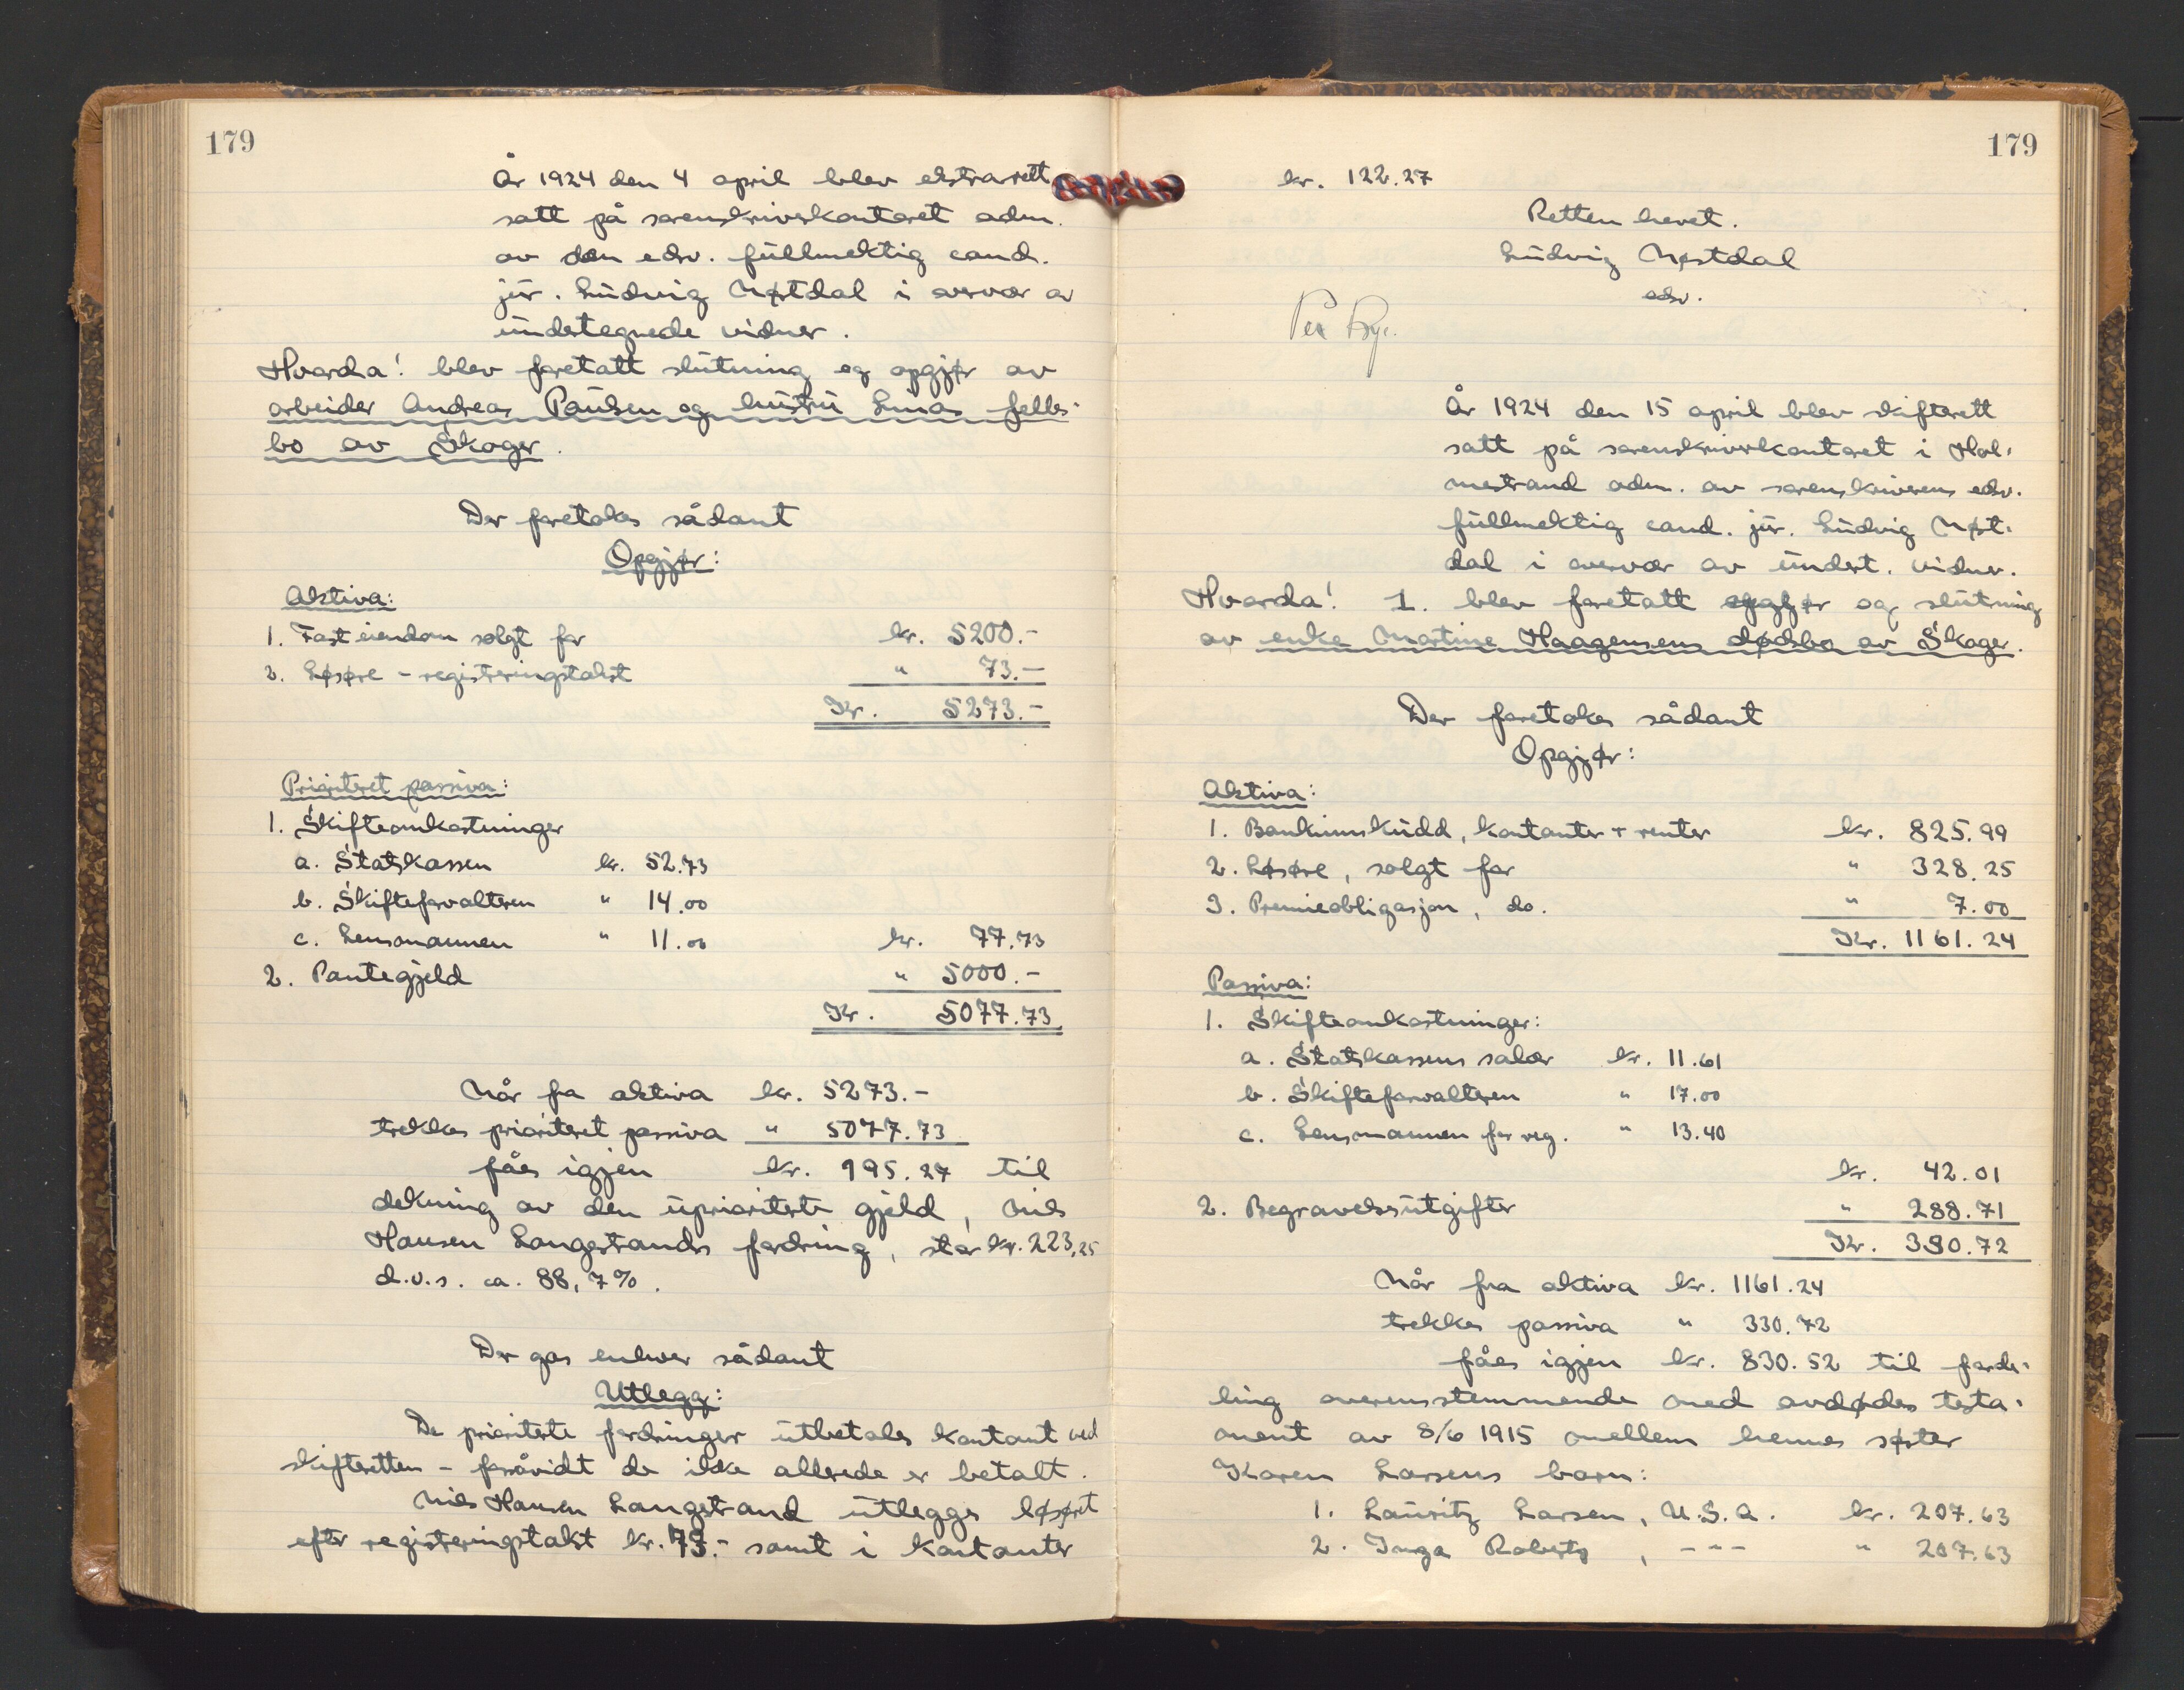 179
År 1924 den 4 april blev ekstrarett
satt på sorenskriverkontoret adm.
av den edsv. fullmektig cand.
jur. Ludvig Nøstdal i overvær av
undertegnede vidner.
Hvorda! blev foretatt slutning og opgjør av
arbeider Andreas Paulsen og hustru Linas felles-
bo av Skoger.
Der foretokes sådant
Opgjør:
Aktiva:
1. Fast eiendom solgt for kr. 5200.-
2. Løsøre - registreringstakst " 73.-
Kr. 5273.-
Prioritert passiva:
1. Skifteomkostninger
a. Statskassen kr. 52.73
b. Skifteforvalteren " 14.00
c. Lensmannen " 11.00 kr. 77.73
2. Pantegjeld " 5000.-
Kr. 5077.73
Når fra aktiva kr. 5273.-
trekkes prioritert passiva " 5077.73
fåes igjen kr. 195.27 til
dekning av den uprioriterte gjeld, Nils
Hansen Langstrands fordring, stor kr. 223,25
d.v.s. ca. 88,7%.
Der gas enhver sådant
Utlegg:
De prioriterte fordringer utbetales kontant ved
skifteretten - forsåvidt de ikke allerede er betalt.
Nils Hansen Langstrand utlegges løsøret
efter registreringstakst kr. 73.- samt i kontanter
179
kr. 122.27
Retten hevet.
Ludvig Nøstdal
edsv.
Per Rye.
År 1924 den 15 april blev skifterett
satt på sorenskriverkontoret i Hol-
mestrand adm. av sorenskriverens edsv.
fullmektig cand. jur. Ludvig Nøst-
dal i overvær av undert. vidner.
Hvorda! 1. blev foretatt opgjør og slutning
av enke Martine Haagensens dødsbo av Skoger.
Der foretokes sådant
Opgjør:
Aktiva:
1. Bankinnskudd, kontanter + renter kr. 825.99
2. Løsøre, solgt for " 328.25
3. Premieobligasjon, do. " 7.00
Kr. 1161.24
Passiva:
1. Skifteomkostninger:
a. Statskassens salær kr. 11.61
b. Skifteforvalteren " 17.00
c. Lensmannen for reg. " 13.40
kr. 42.01
2. Begravelsesutgifter " 288.71
Kr. 330.72
Når fra aktiva kr. 1161.24
trekkes passiva " 330.72
fåes igjen kr. 830.52 til forde-
ling overensstemmende med avdødes testa-
ment av 8/6 1915 mellem hennes søster
Karen Larsens barn:
1. Lauritz Larsen, U.S.A. kr. 207.63
2. Inga Roberts, -"- " 207.63